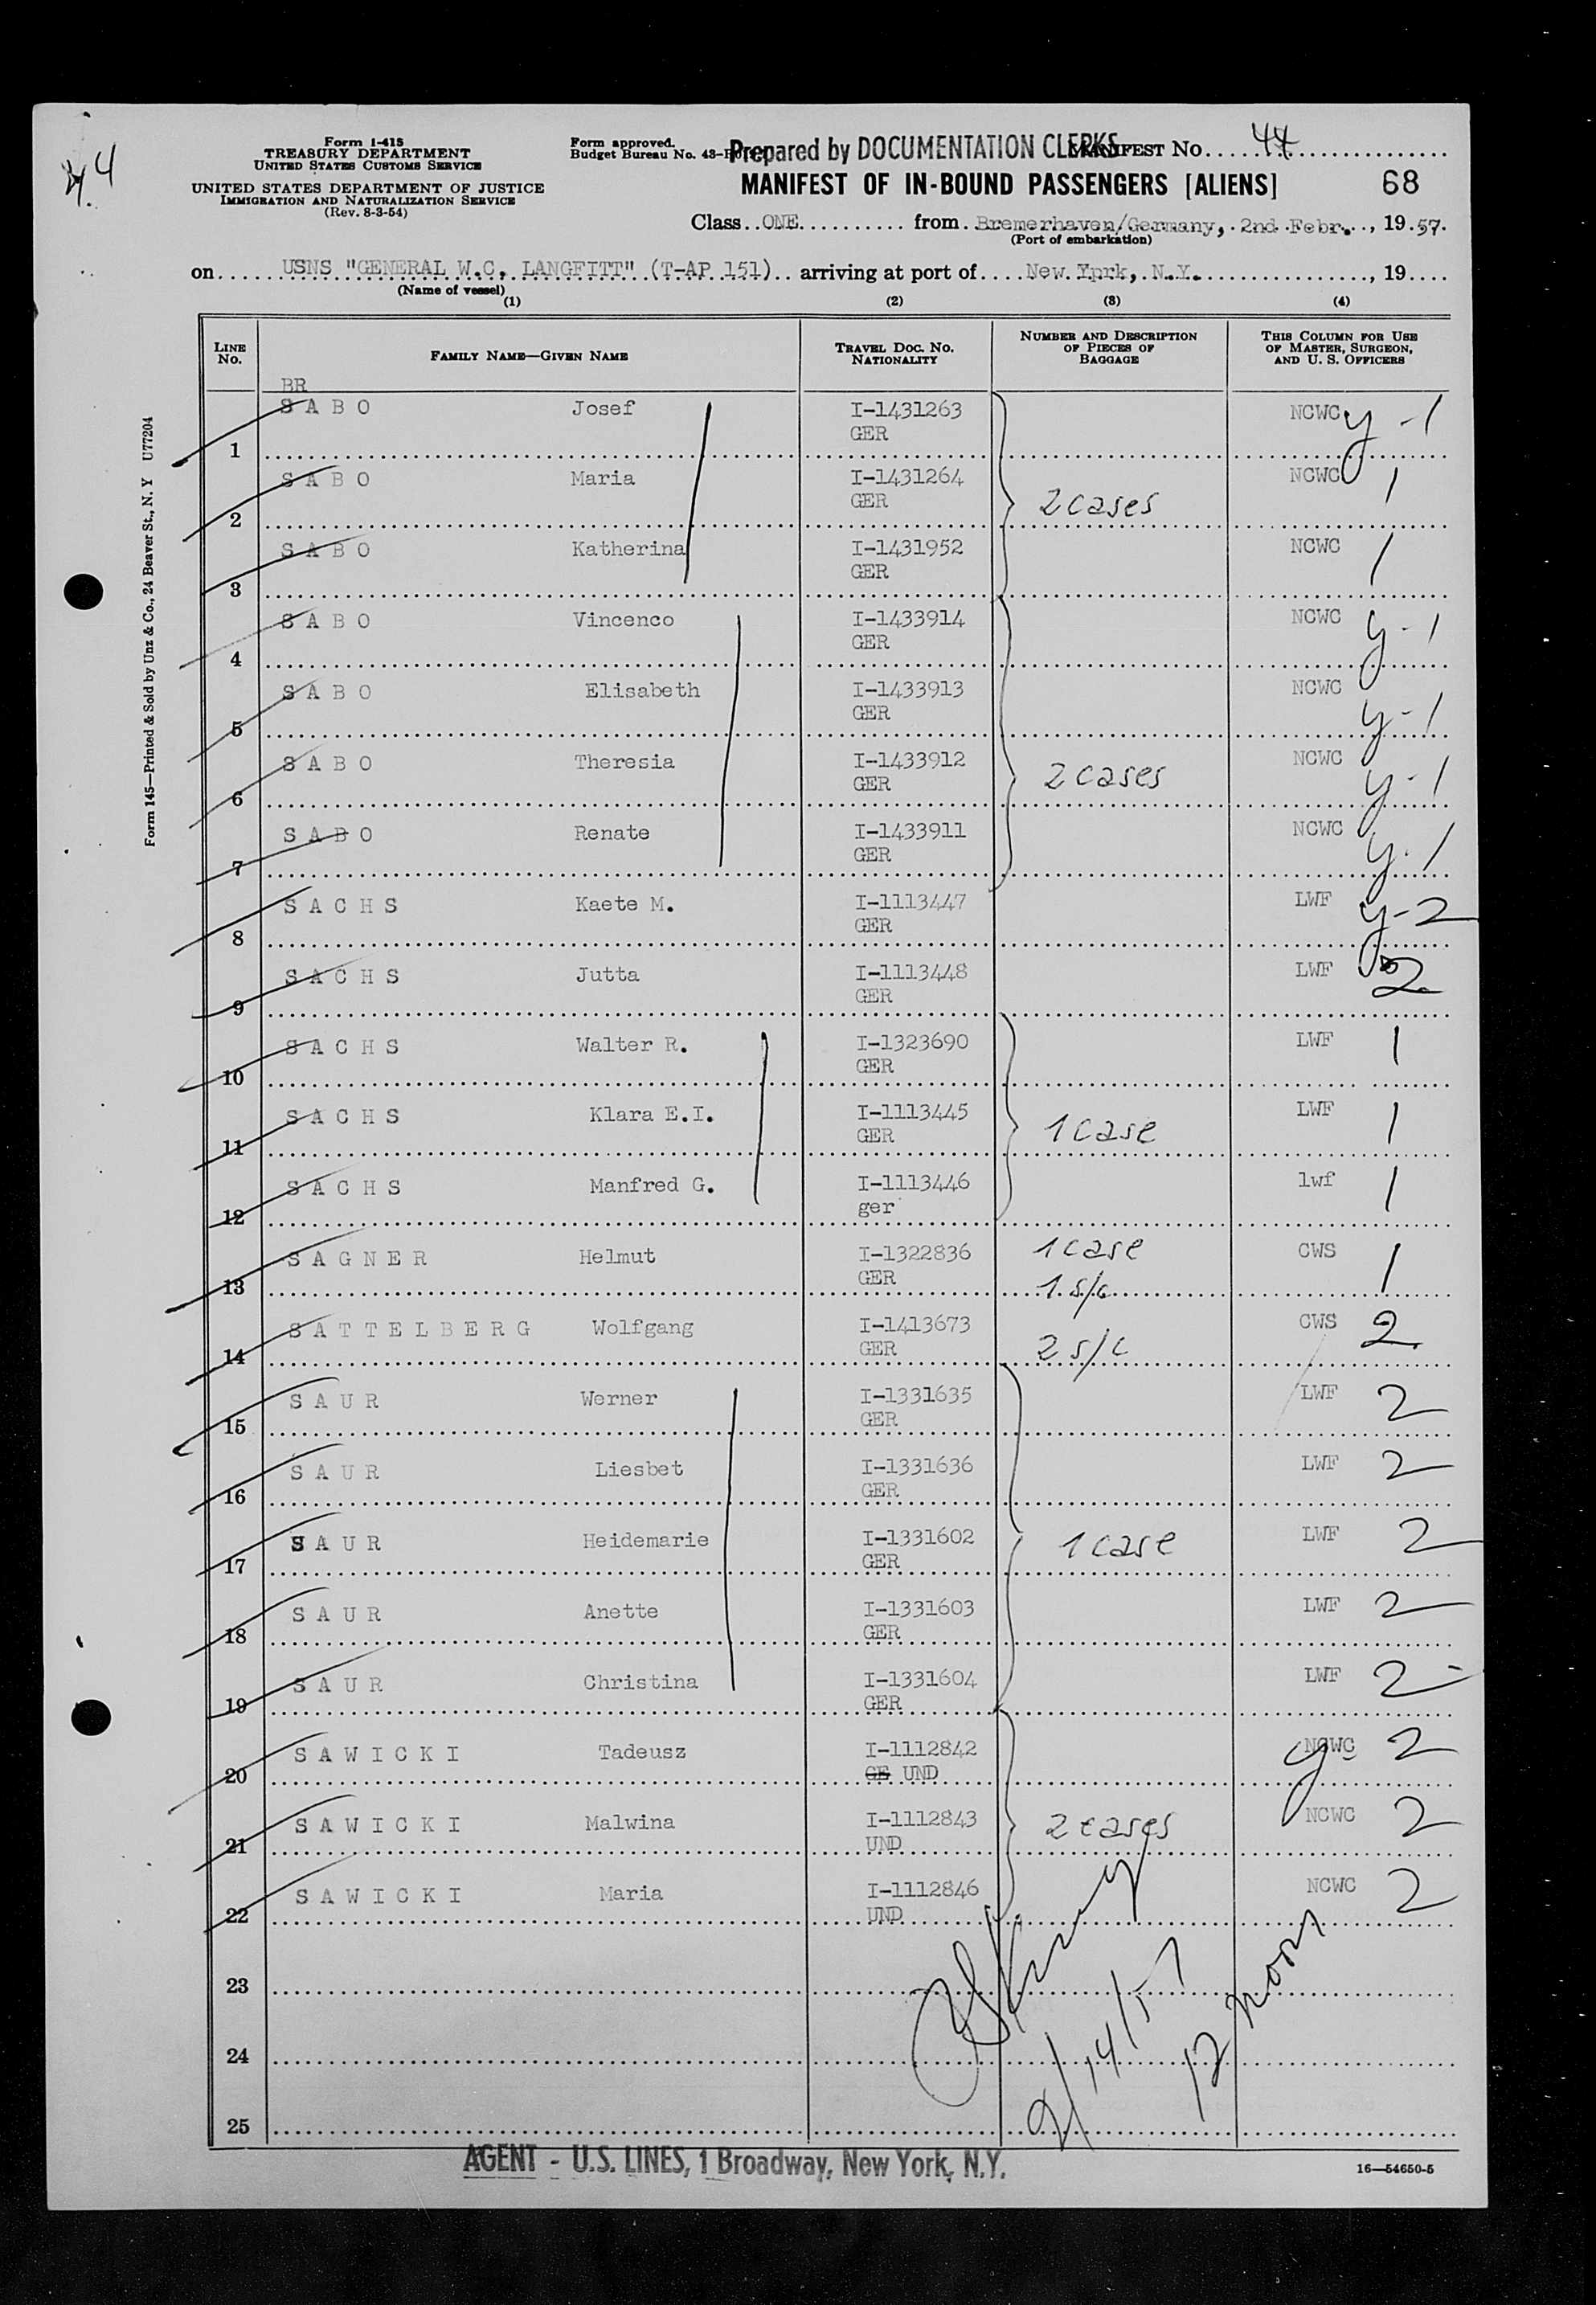 Form I-415
TREASURY DEPARTMENT
UNITED STATES CUSTOMS SERVICE
UNITED STATES DEPARTMENT OF JUSTICE
IMMIGRATION AND NATURALIZATION SERVICE
(Rev. 8-3-54)
Form approved.
Budget Bureau No. 43-
Prepared by DOCUMENTATION CLERKS
MANIFEST NO. 44
MANIFEST OF IN-BOUND PASSENGERS [ALIENS] 68
Class ONE from Bremerhaven/Germany, 2nd Febr., 19 57.
(Port of embarkation)
on USNS "GENERAL W.C. LANGFITT" (T-AP 151) arriving at port of New Yprk, N.Y., 19
(Name of vessel)
(1) (2) (3) (4)
LINE NO. FAMILY NAME—GIVEN NAME TRAVEL DOC. NO. NATIONALITY NUMBER AND DESCRIPTION OF PIECES OF BAGGAGE THIS COLUMN FOR USE OF MASTER, SURGEON, AND U. S. OFFICERS
BR
1 SABO Josef I-1431263 GER NCWC y-1
2 SABO Maria I-1431264 GER 2 cases NCWC 1
3 SABO Katherina I-1431952 GER NCWC 1
4 SABO Vincenco I-1433914 GER NCWC y-1
5 SABO Elisabeth I-1433913 GER NCWC y-1
6 SABO Theresia I-1433912 GER 2 cases NCWC y-1
7 SABO Renate I-1433911 GER NCWC y-1
8 SACHS Kaete M. I-1113447 GER LWF y-2
9 SACHS Jutta I-1113448 GER LWF 2
10 SACHS Walter R. I-1323690 GER LWF 1
11 SACHS Klara E.I. I-1113445 GER 1 case LWF 1
12 SACHS Manfred G. I-1113446 ger lwf 1
13 SAGNER Helmut I-1322836 GER 1 case 1 s/c CWS 1
14 SATTELBERG Wolfgang I-1413673 GER 2 s/c CWS 2
15 SAUR Werner I-1331635 GER LWF 2
16 SAUR Liesbet I-1331636 GER LWF 2
17 SAUR Heidemarie I-1331602 GER 1 case LWF 2
18 SAUR Anette I-1331603 GER LWF 2
19 SAUR Christina I-1331604 GER LWF 2
20 SAWICKI Tadeusz I-1112842 GE UND NCWC y 2
21 SAWICKI Malwina I-1112843 UND 2 cases NCWC 2
22 SAWICKI Maria I-1112846 UND NCWC 2
23
24
25
2/14/57
12 noon
AGENT - U.S. LINES, 1 Broadway, New York, N.Y.
16—54650-5
Form 145—Printed & Sold by Unz & Co., 24 Beaver St., N. Y U77204